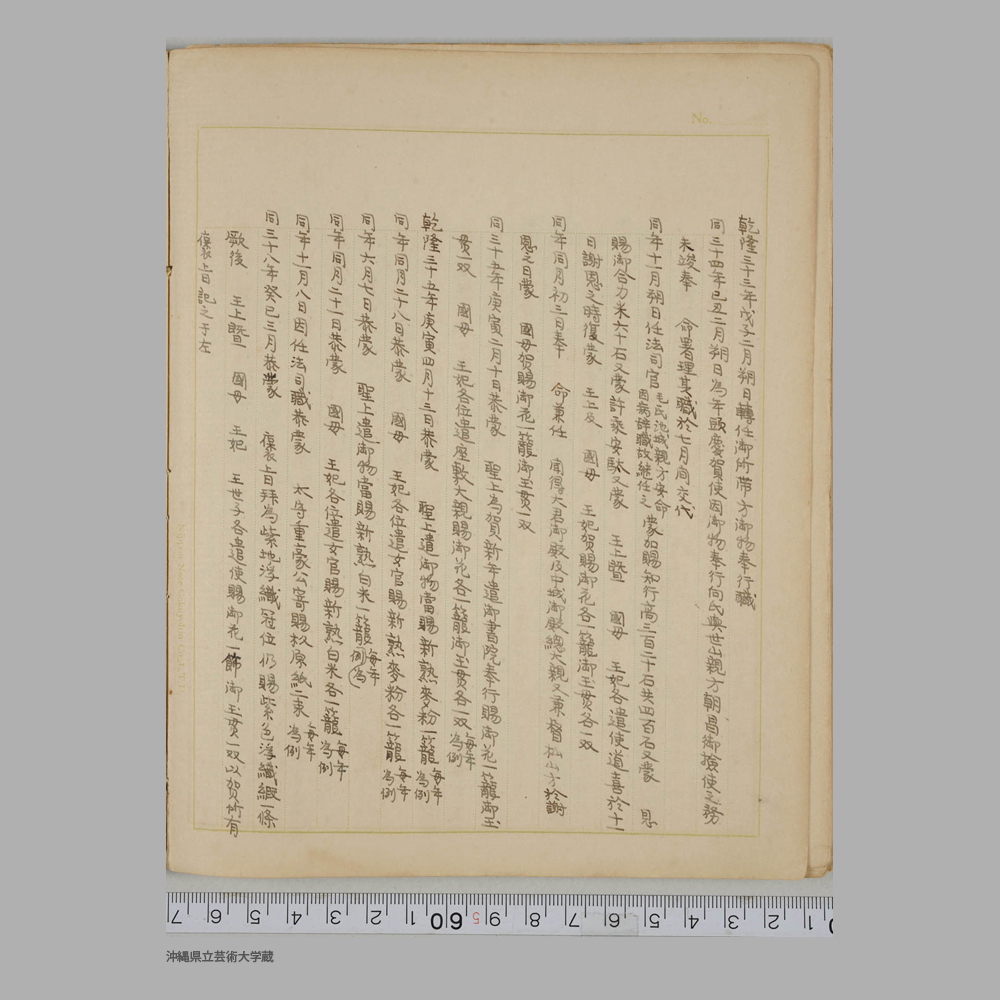 No.
乾隆三十三年戊子二月朔日轉任御所帯方御物奉行職
同三十四年己丑二月朔日為年頭慶賀使因御物奉行向氏與世山親方朝昌御撿使之務
未竣奉 命署理其職於七月同交代
同年十一月朔日任法司官毛氏池城親方安命因病辞職故継任之蒙加賜知行高三百二十石共四百石又蒙 恩
賜御合力米六十石又蒙許乘安駄又蒙 王上暨 國母 王妃各遣使道喜於十一
日謝恩之時復蒙 王上及 國母 王妃賀賜御花各一籠御玉貫各一双
同年同月初三日奉 命兼任 聞得大君御殿及中城御殿總大親又兼督杣山方於謝
恩之日蒙 國母賀賜御花一籠御玉貫一双
同三十五年庚寅二月十日恭蒙 聖上為賀新年遣御書院奉行賜御花一籠御玉
貫一双 國母 王妃各位遣座敷大親賜御花各一籠御玉貫各一双毎年為例
乾隆三十五年庚寅四月十三日恭蒙 聖上遣御物當賜新熟麥粉一籠毎年為例
同年同月二十八日恭蒙 國母 王妃各位遣女官賜新熟麥粉各一籠毎年為例
同年六月七日恭蒙 聖上遣御物當賜新熟白米一籠毎年例(為)
同年同月二十一日恭蒙 國母 王妃各位遣女官賜新熟白米各一籠毎年為例
同年十一月八日因任法司職恭蒙 太守重豪公寄賜杉原紙二束毎年為例
同三十八年癸巳三月恭蒙 褒上日拜為紫地浮織冠位仍賜紫色浮織緞一條
厥後 王上暨 國母 王妃 王世子各遣使賜御花一飾御玉貫一双以賀所有
褒上日記之于左
7 6 5 4 3 2 1 60 5 9 8 7 6 5 4 3 2 1
沖縄県立芸術大学蔵